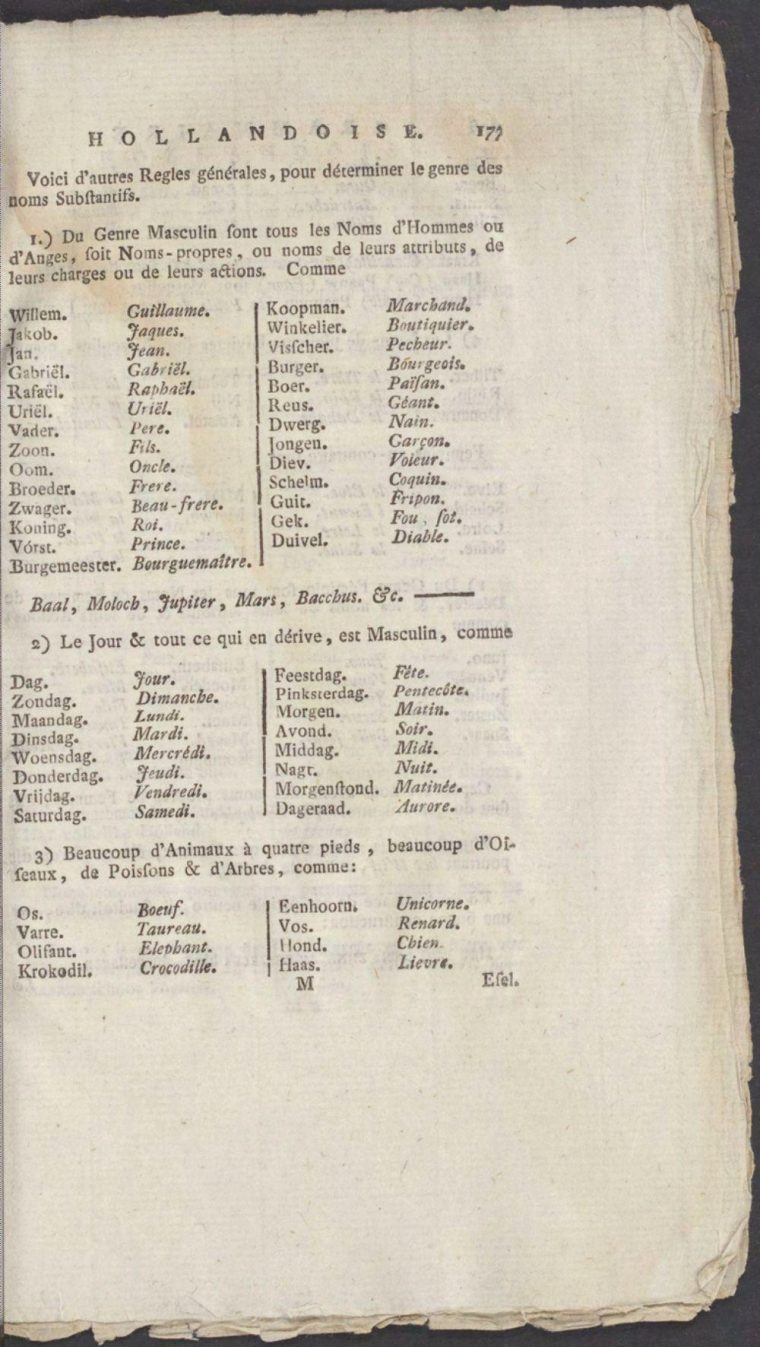 HOLLANDOISE. 177
Voici d'autres Regles générales, pour déterminer le genre des
noms Subſtantifs.
1.) Du Genre Masculin ſont tous les Noms d'Hommes ou
d'Anges, ſoit Noms-propres, ou noms de leurs attributs, de
leurs charges ou de leurs actions. Comme
Willem. Guillaume.
Jakob. Jaques.
Jan. Jean.
Gabriël. Gabriël.
Rafaël. Raphaël.
Uriël. Uriël.
Vader. Pere.
Zoon. Fils.
Oom. Oncle.
Broeder. Frere.
Zwager. Beau-frere.
Koning. Roi.
Vórst. Prince.
Burgemeester. Bourguemaître.
Koopman. Marchand.
Winkelier. Boutiquier.
Visſcher. Pecheur.
Burger. Bourgeois.
Boer. Païſan.
Reus. Géant.
Dwerg. Nain.
Jongen. Garçon.
Diev. Voleur.
Schelm. Coquin.
Guit. Fripon.
Gek. Fou, ſot.
Duivel. Diable.
Baal, Moloch, Jupiter, Mars, Bacchus. &c. ———
2) Le Jour & tout ce qui en dérive, est Masculin, comme
Dag. Jour.
Zondag. Dimanche.
Maandag. Lundi.
Dinsdag. Mardi.
Woensdag. Mercrédi.
Donderdag. Jeudi.
Vrijdag. Vendredi.
Saturdag. Samedi.
Feestdag. Fête.
Pinksterdag. Pentecôte.
Morgen. Matin.
Avond. Soir.
Middag. Midi.
Nagt. Nuit.
Morgenſtond. Matinée.
Dageraad. Aurore.
3) Beaucoup d'Animaux à quatre pieds, beaucoup d'Oi-
ſeaux, de Poisſons & d'Arbres, comme:
Os. Boeuf.
Varre. Taureau.
Olifant. Elephant.
Krokodil. Crocodille.
Eenhoorn. Unicorne.
Vos. Renard.
Hond. Chien.
Haas. Lievre.
M Eſel.